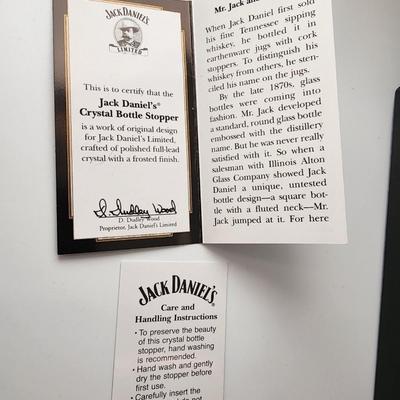 JACK DANIEL'S
LIMITED
This is to certify that the
Jack Daniel's®
Crystal Bottle Stopper
is a work of original design
for Jack Daniel's Limited,
crafted of polished full-lead
crystal with a frosted finish.
D. Dudley Wood
D. Dudley Wood
Proprietor, Jack Daniel's Limited
Mr. Jack and
When Jack Daniel first sold
his fine Tennessee sipping
whiskey, he bottled it in
earthenware jugs with cork
stoppers. To distinguish his
whiskey from others, he sten-
ciled his name on the jugs.
By the late 1870s, glass
bottles were coming into
fashion. Mr. Jack developed
a standard, round glass bottle
embossed with the distillery
name. But he was never really
satisfied with it. So when a
salesman with Illinois Alton
Glass Company showed Jack
Daniel a unique, untested
bottle design—a square bot-
tle with a fluted neck—Mr.
Jack jumped at it. For here
JACK DANIEL'S
Care and
Handling Instructions
• To preserve the beauty
of this crystal bottle
stopper, hand washing
is recommended.
• Hand wash and gently
dry the stopper before
first use.
• Carefully insert the
do not